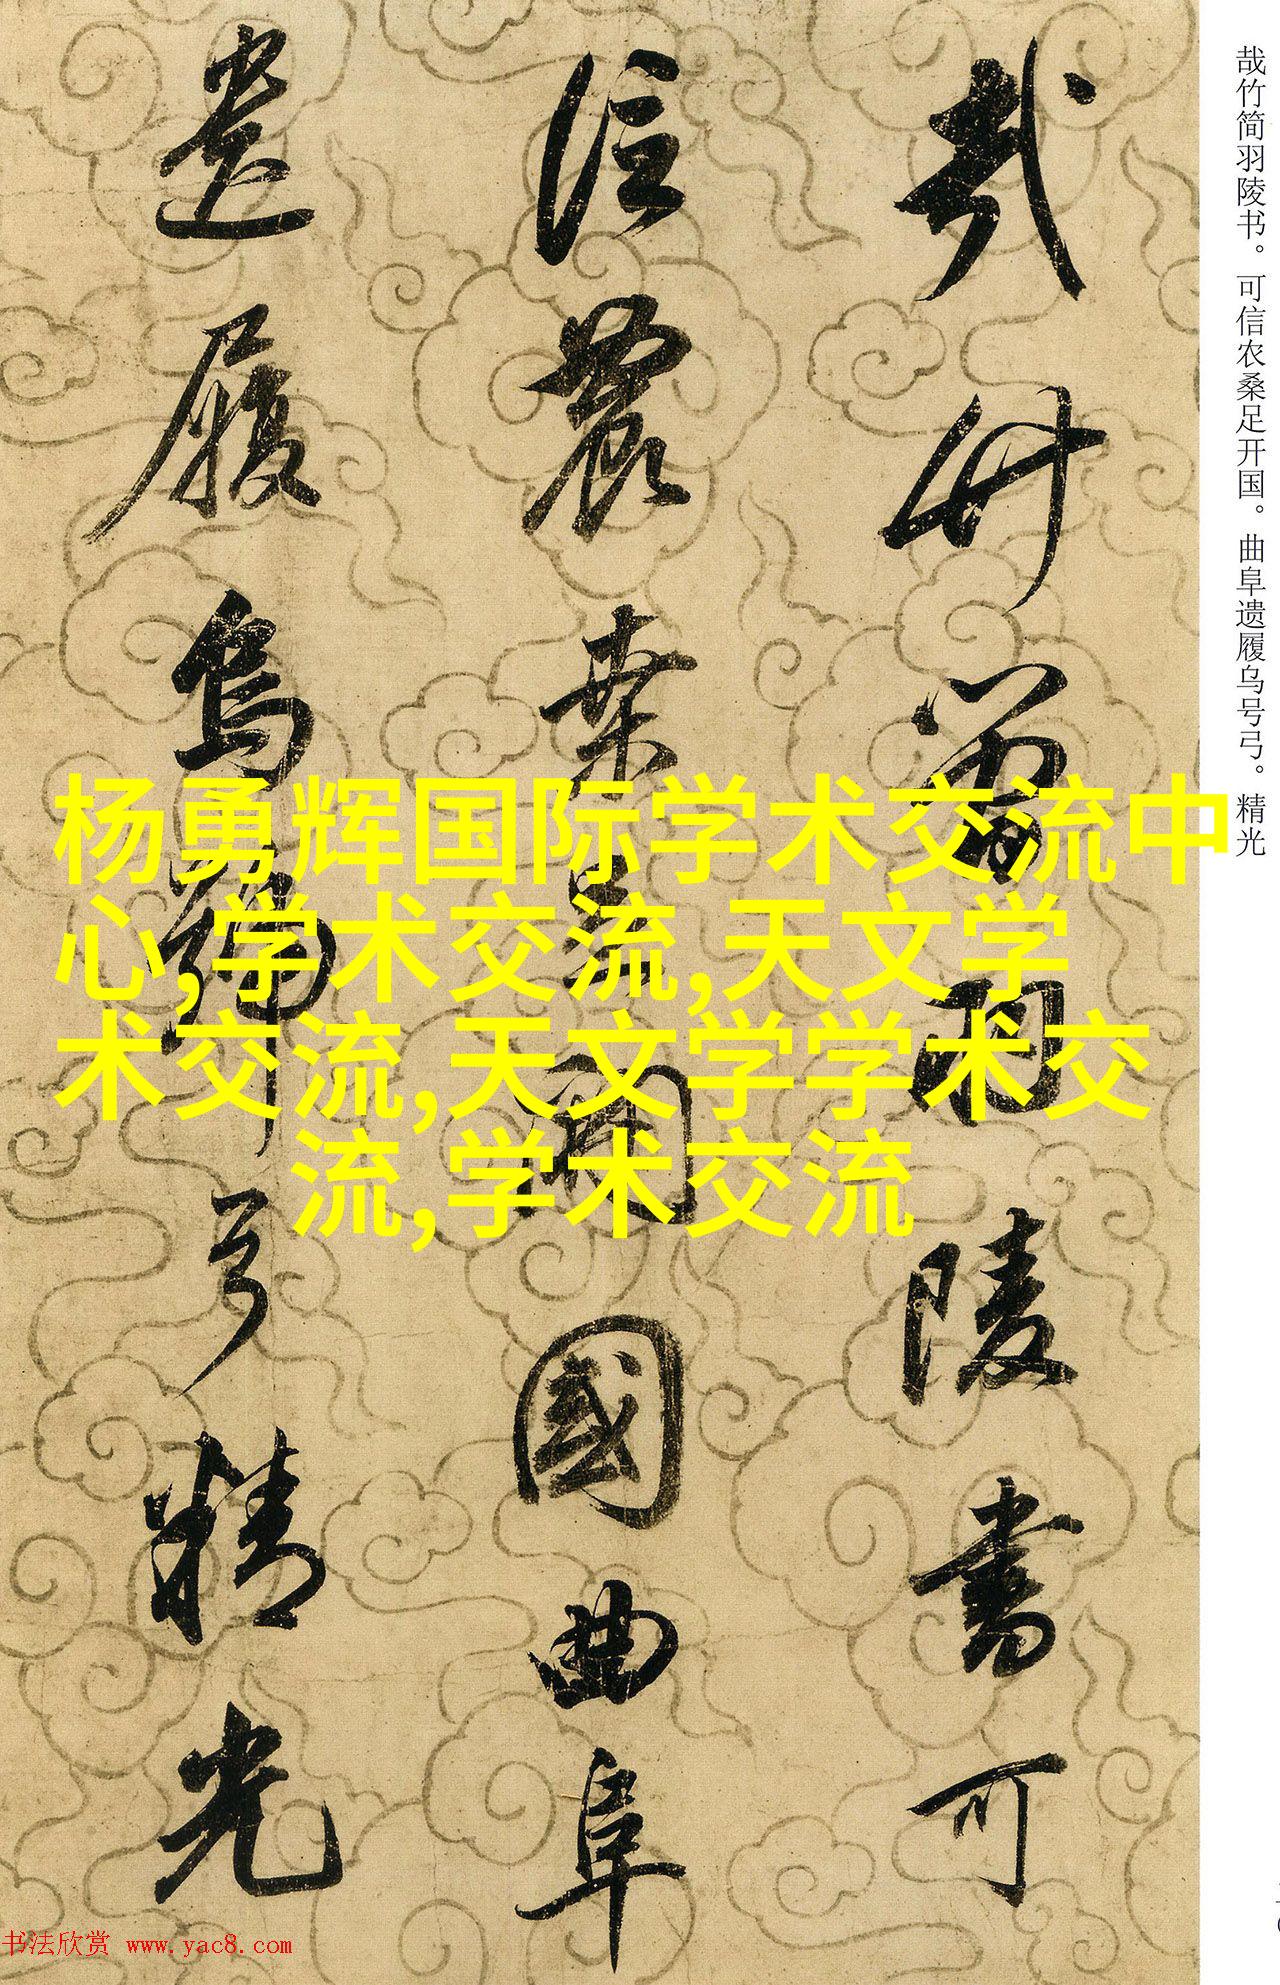 哉竹简羽陵书。可信农桑足开国。曲阜遗履乌号弓。精光
哉竹簡羽陵書可
信農桒足開國曲阜
遺履烏號弓精光
杨勇辉国际学术交流中
心,学术交流,天文学
术交流,天文学学术交
流,学术交流
书法欣赏 www.yac8.com